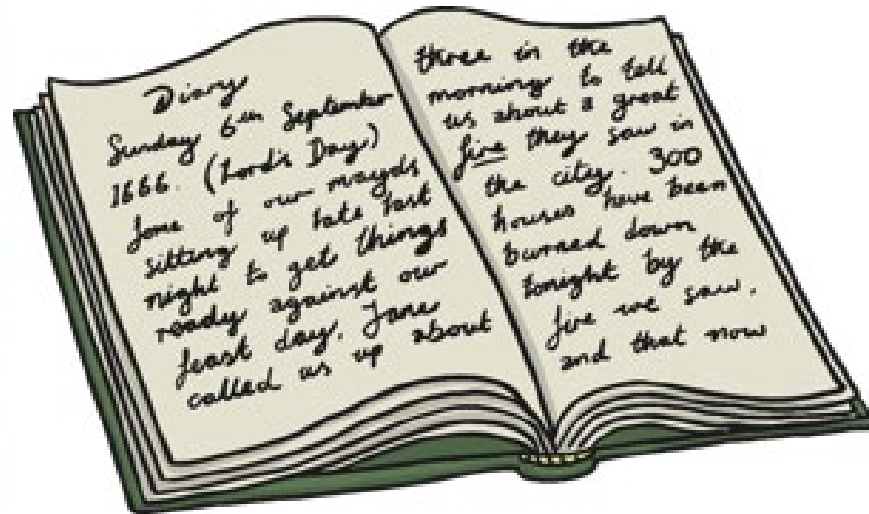 Diary
Sunday 6th September
1666. (Lord's Day)
Some of our mayds
sitting up late last
night to get things
ready against our
feast day, Jane
called us up about
three in the
morning to tell
us about a great
fire they saw in
the city. 300
houses have been
burned down
tonight by the
fire we saw.
and that now